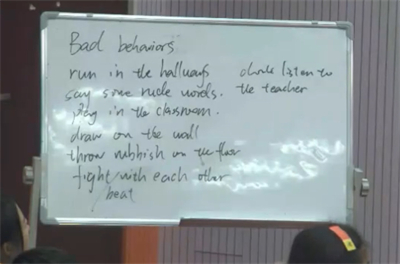 Bad behaviors
run in the hallways don't listen to
say some rude words. the teacher
play in the classroom.
draw on the wall
throw rubbish on the floor
fight/with each other
beat